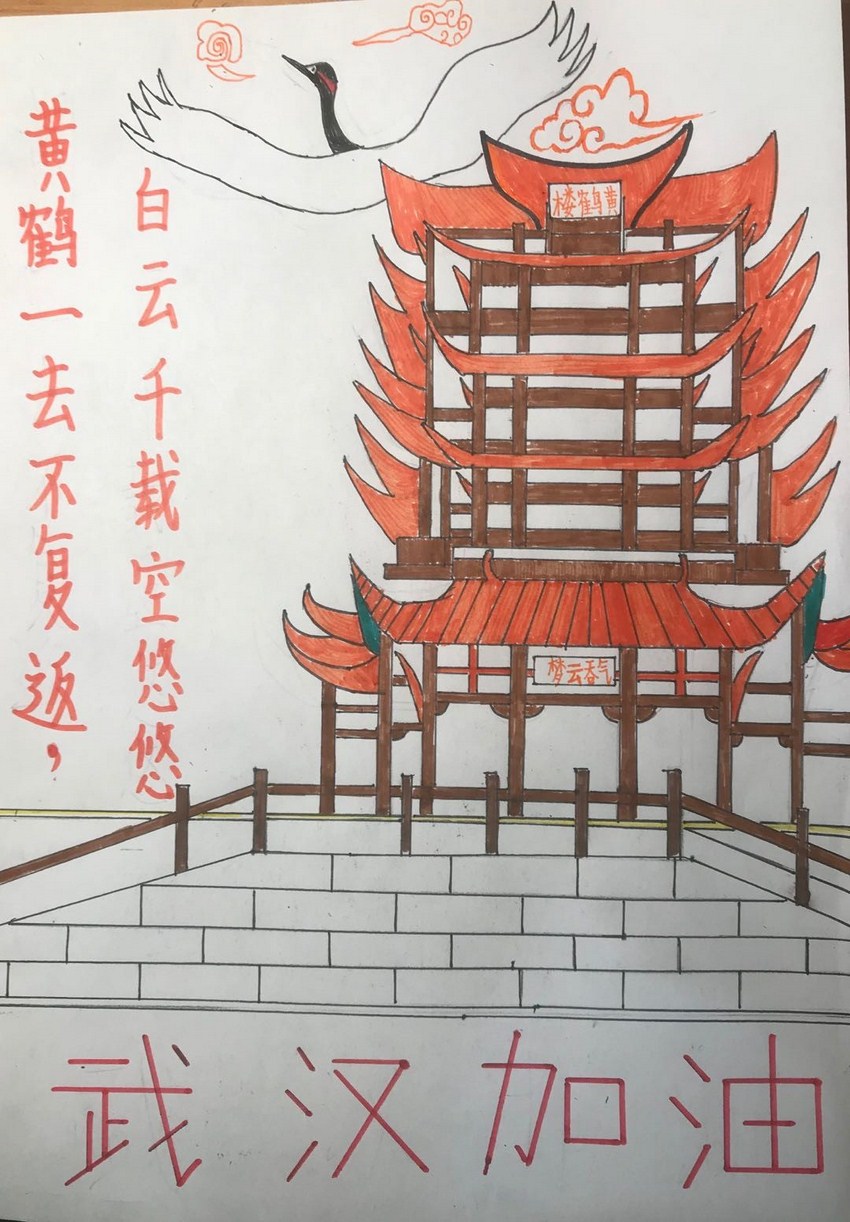 黄鹤一去不复返，
白云千载空悠悠
黄鹤楼
气吞云梦
武汉加油